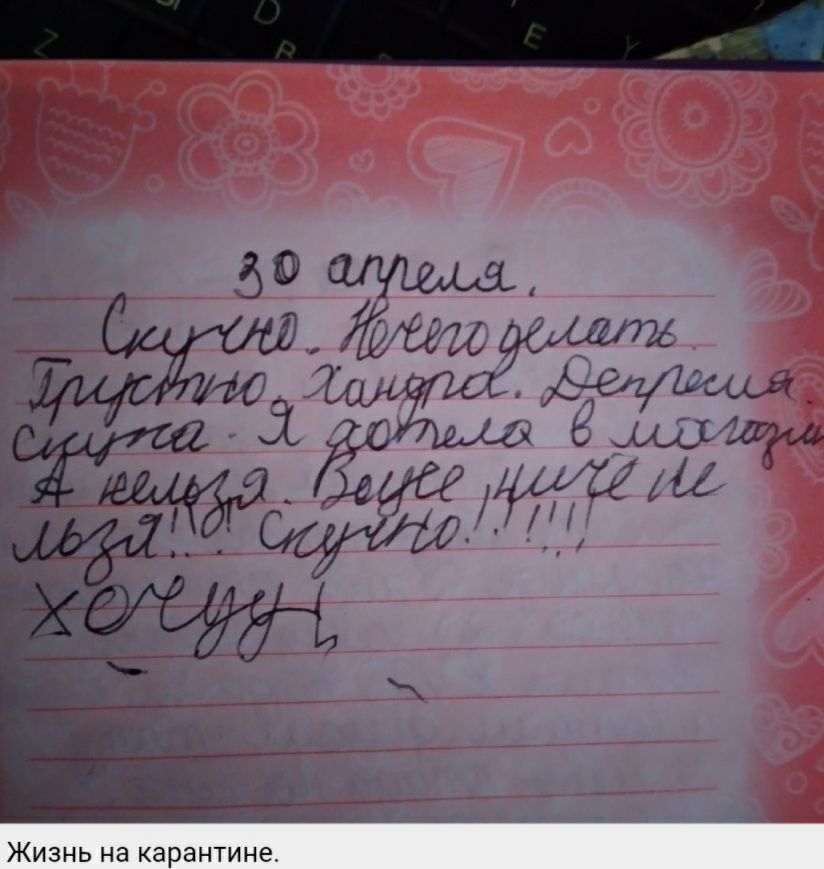 D E
Z B Y
30 апреля.
Скучно. Нечего делать.
Грустно. Хандра. Депресия.
Скука. Я хотела в магазин
А нельзя. Воусе ниче не
льзя!!! Скучно!!!!!!
ХОЧУУ
Жизнь на карантине.